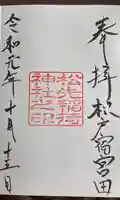 奉拝 松戸宿宮田
松先稲荷
神社之印
令和元年十月十三日